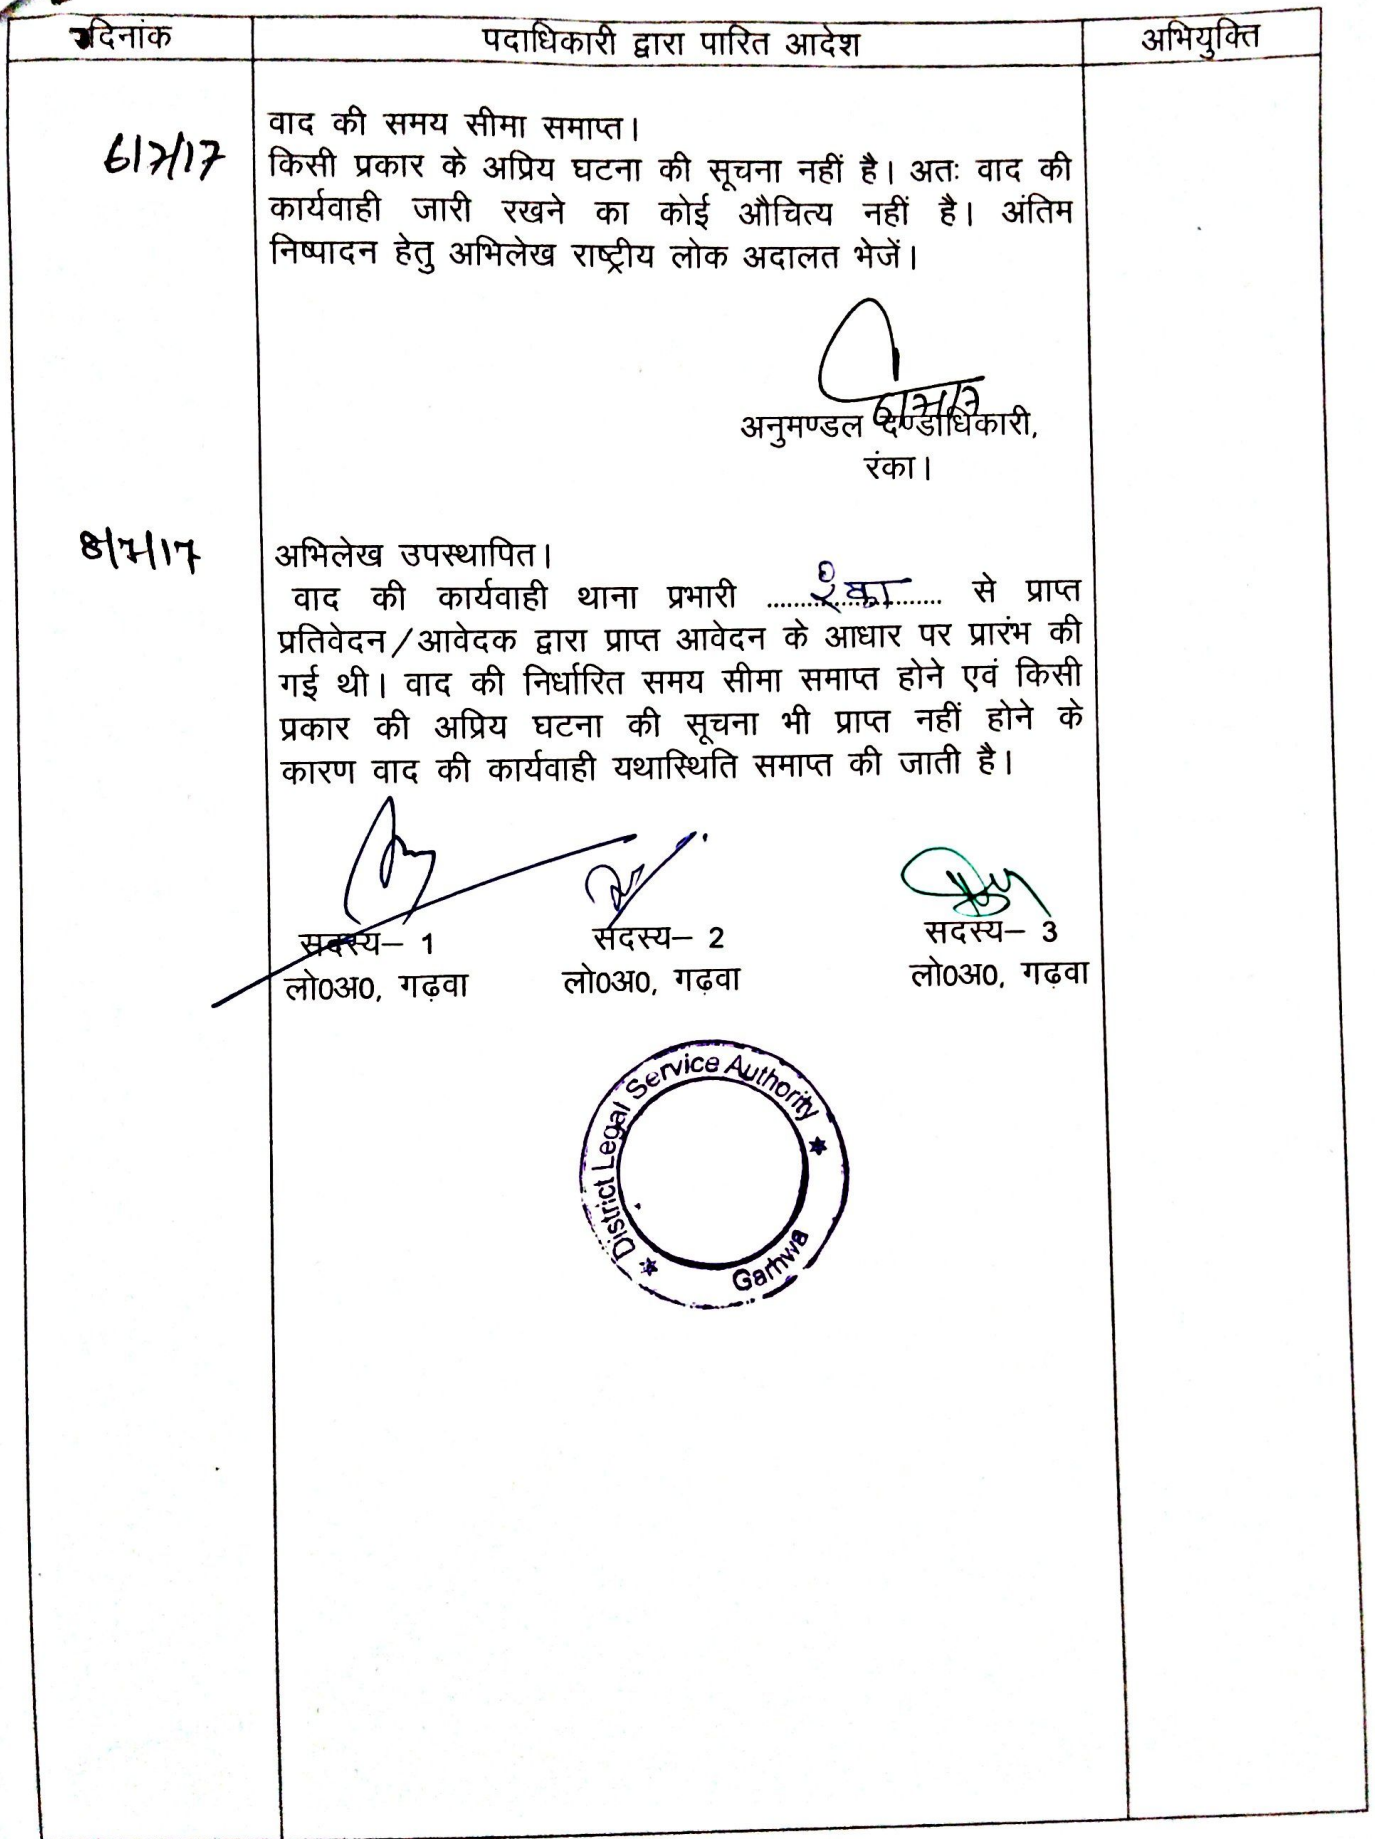 दिनांक पदाधिकारी द्वारा पारित आदेश अभियुक्ति
6/7/17
वाद की समय सीमा समाप्त।
किसी प्रकार के अप्रिय घटना की सूचना नहीं है। अतः वाद की
कार्यवाही जारी रखने का कोई औचित्य नहीं है। अंतिम
निष्पादन हेतु अभिलेख राष्ट्रीय लोक अदालत भेजें।
6/7/17
अनुमण्डल दण्डाधिकारी,
रंका।
8/7/17
अभिलेख उपस्थापित।
वाद की कार्यवाही थाना प्रभारी रंका से प्राप्त
प्रतिवेदन/आवेदक द्वारा प्राप्त आवेदन के आधार पर प्रारंभ की
गई थी। वाद की निर्धारित समय सीमा समाप्त होने एवं किसी
प्रकार की अप्रिय घटना की सूचना भी प्राप्त नहीं होने के
कारण वाद की कार्यवाही यथास्थिति समाप्त की जाती है।
सदस्य– 1 सदस्य– 2 सदस्य– 3
लो0अ0, गढ़वा लो0अ0, गढ़वा लो0अ0, गढ़वा
District Legal Service Authority
Garhwa